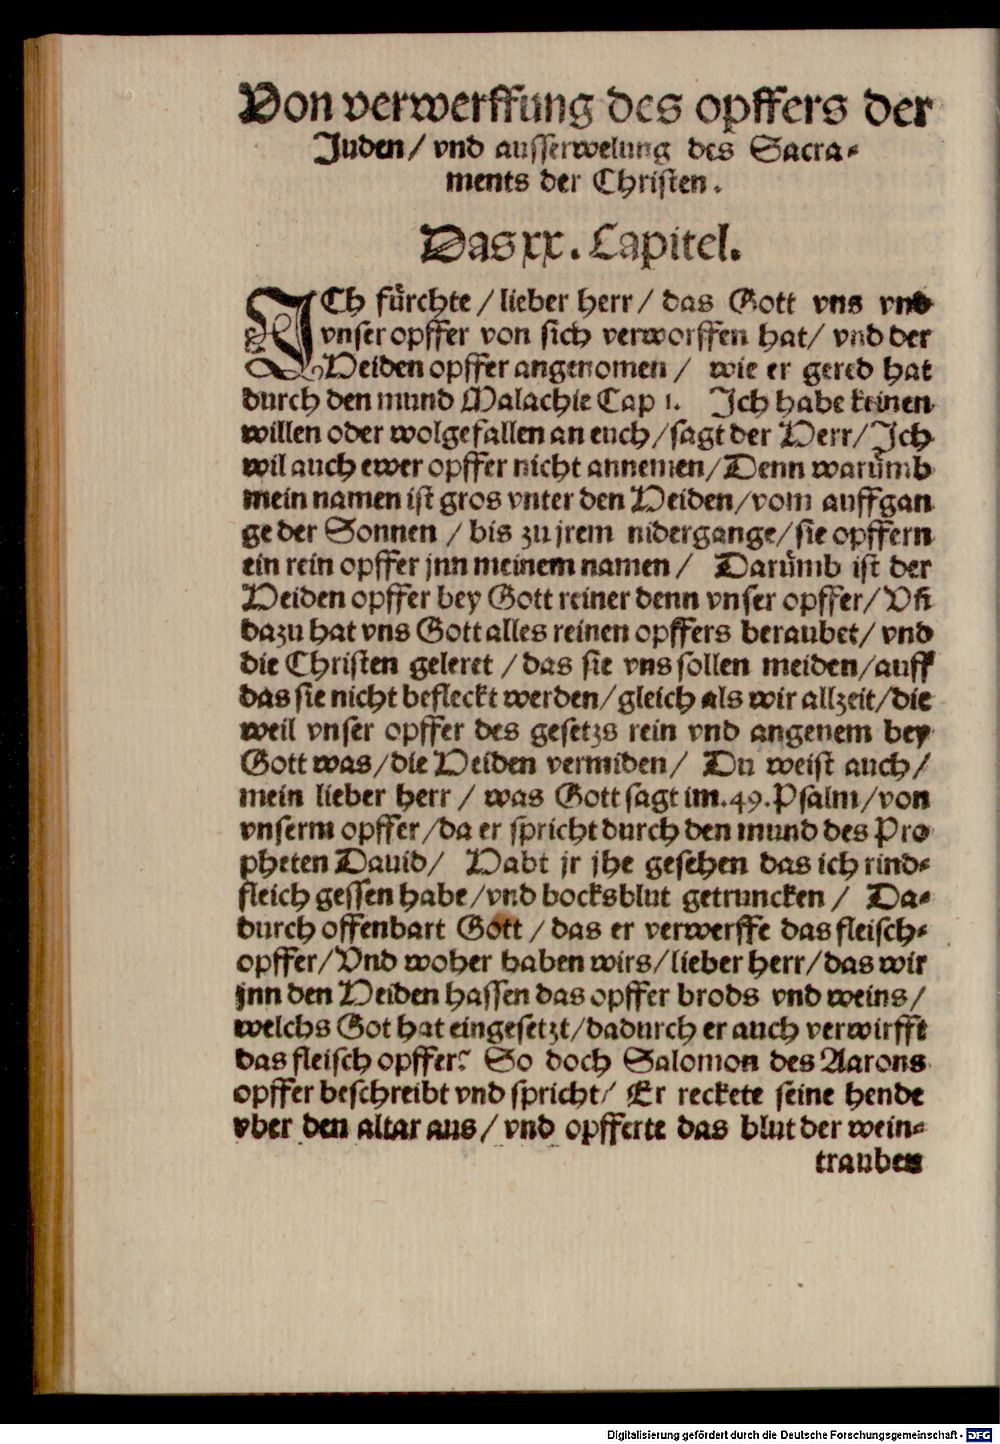 Von verwerffung des opffers der
Juden / vnd ausserwelung des Sacra-
ments der Christen.
Das xx. Capitel.
ICh fürchte / lieber herr / das Gott vns vnd
vnser opffer von sich verworffen hat / vnd der
Heiden opffer angenomen / wie er gered hat
durch den mund Malachie Cap 1. Ich habe keinen
willen oder wolgefallen an euch / sagt der Herr / Ich
wil auch ewer opffer nicht annemen / Denn warumb
mein namen ist gros vnter den Heiden / vom auffgan
ge der Sonnen / bis zu jrem nidergange / sie opffern
ein rein opffer jnn meinem namen / Darumb ist der
Heiden opffer bey Gott reiner denn vnser opffer / Vñ
dazu hat vns Gott alles reinen opffers beraubet / vnd
die Christen geleret / das sie vns sollen meiden / auff
das sie nicht befleckt werden / gleich als wir allzeit / die
weil vnser opffer des gesetzs rein vnd angenem bey
Gott was / die Heiden vermiden / Du weist auch /
mein lieber herr / was Gott sagt im .49. Psalm / von
vnserm opffer / da er spricht durch den mund des Pro
pheten Dauid / Habt jr jhe gesehen das ich rind-
fleich gessen habe / vnd bocksblut getruncken / Da-
durch offenbart Gott / das er verwerffe das fleisch-
opffer / Vnd woher haben wirs / lieber herr / das wir
jnn den Heiden hassen das opffer brods vnd weins /
welchs Got hat eingesetzt / dadurch er auch verwirfft
das fleisch opffer? So doch Salomon des Aarons
opffer beschreibt vnd spricht / Er reckete seine hende
vber den altar aus / vnd opfferte das blut der wein-
trauben
Digitalisierung gefördert durch die Deutsche Forschungsgemeinschaft - DFG